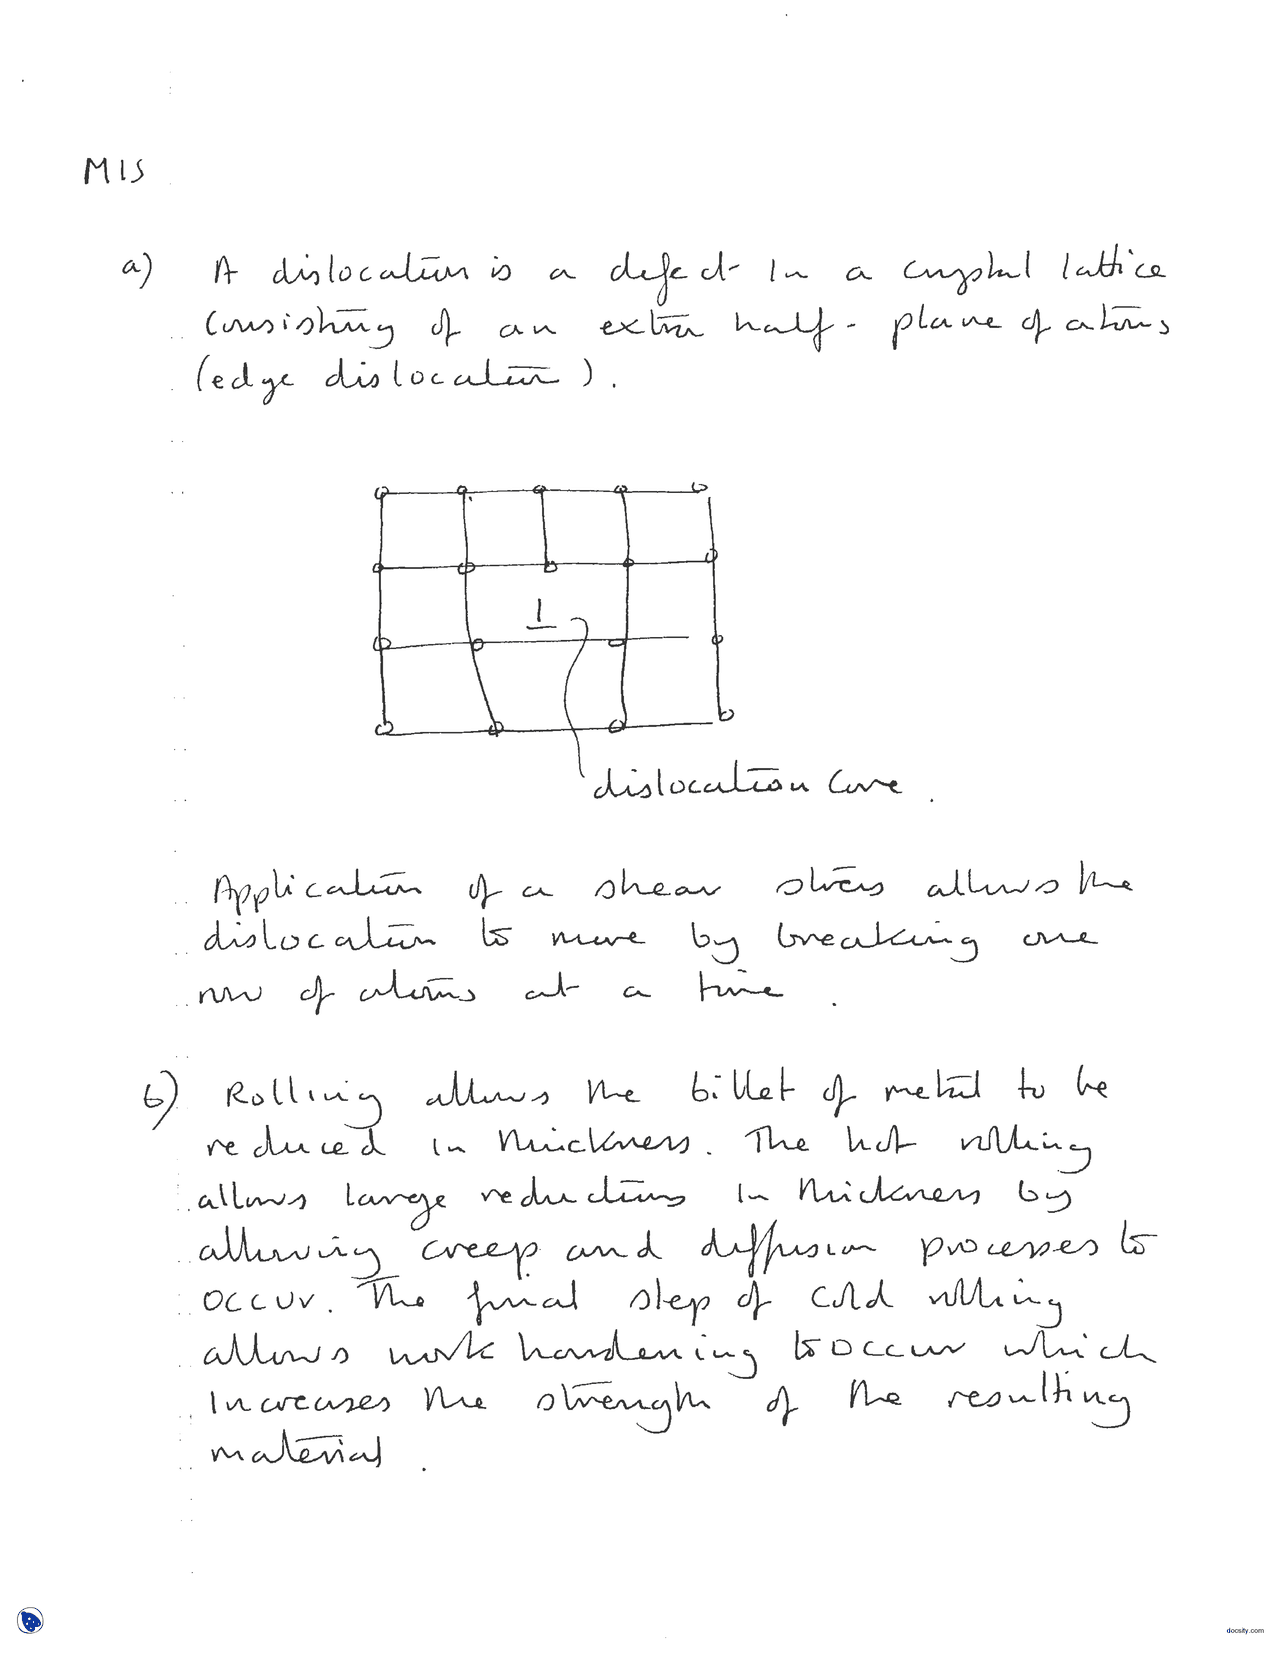 M15
a) A dislocation is a defect in a crystal lattice
consisting of an extra half-plane of atoms
(edge dislocation).
⊥
dislocation core.
Application of a shear stress allows the
dislocation to move by breaking one
row of atoms at a time.
b) Rolling allows the billet of metal to be
reduced in thickness. The hot rolling
allows large reductions in thickness by
allowing creep and diffusion processes to
occur. The final step of cold rolling
allows work hardening to occur which
increases the strength of the resulting
material.
docsity.com